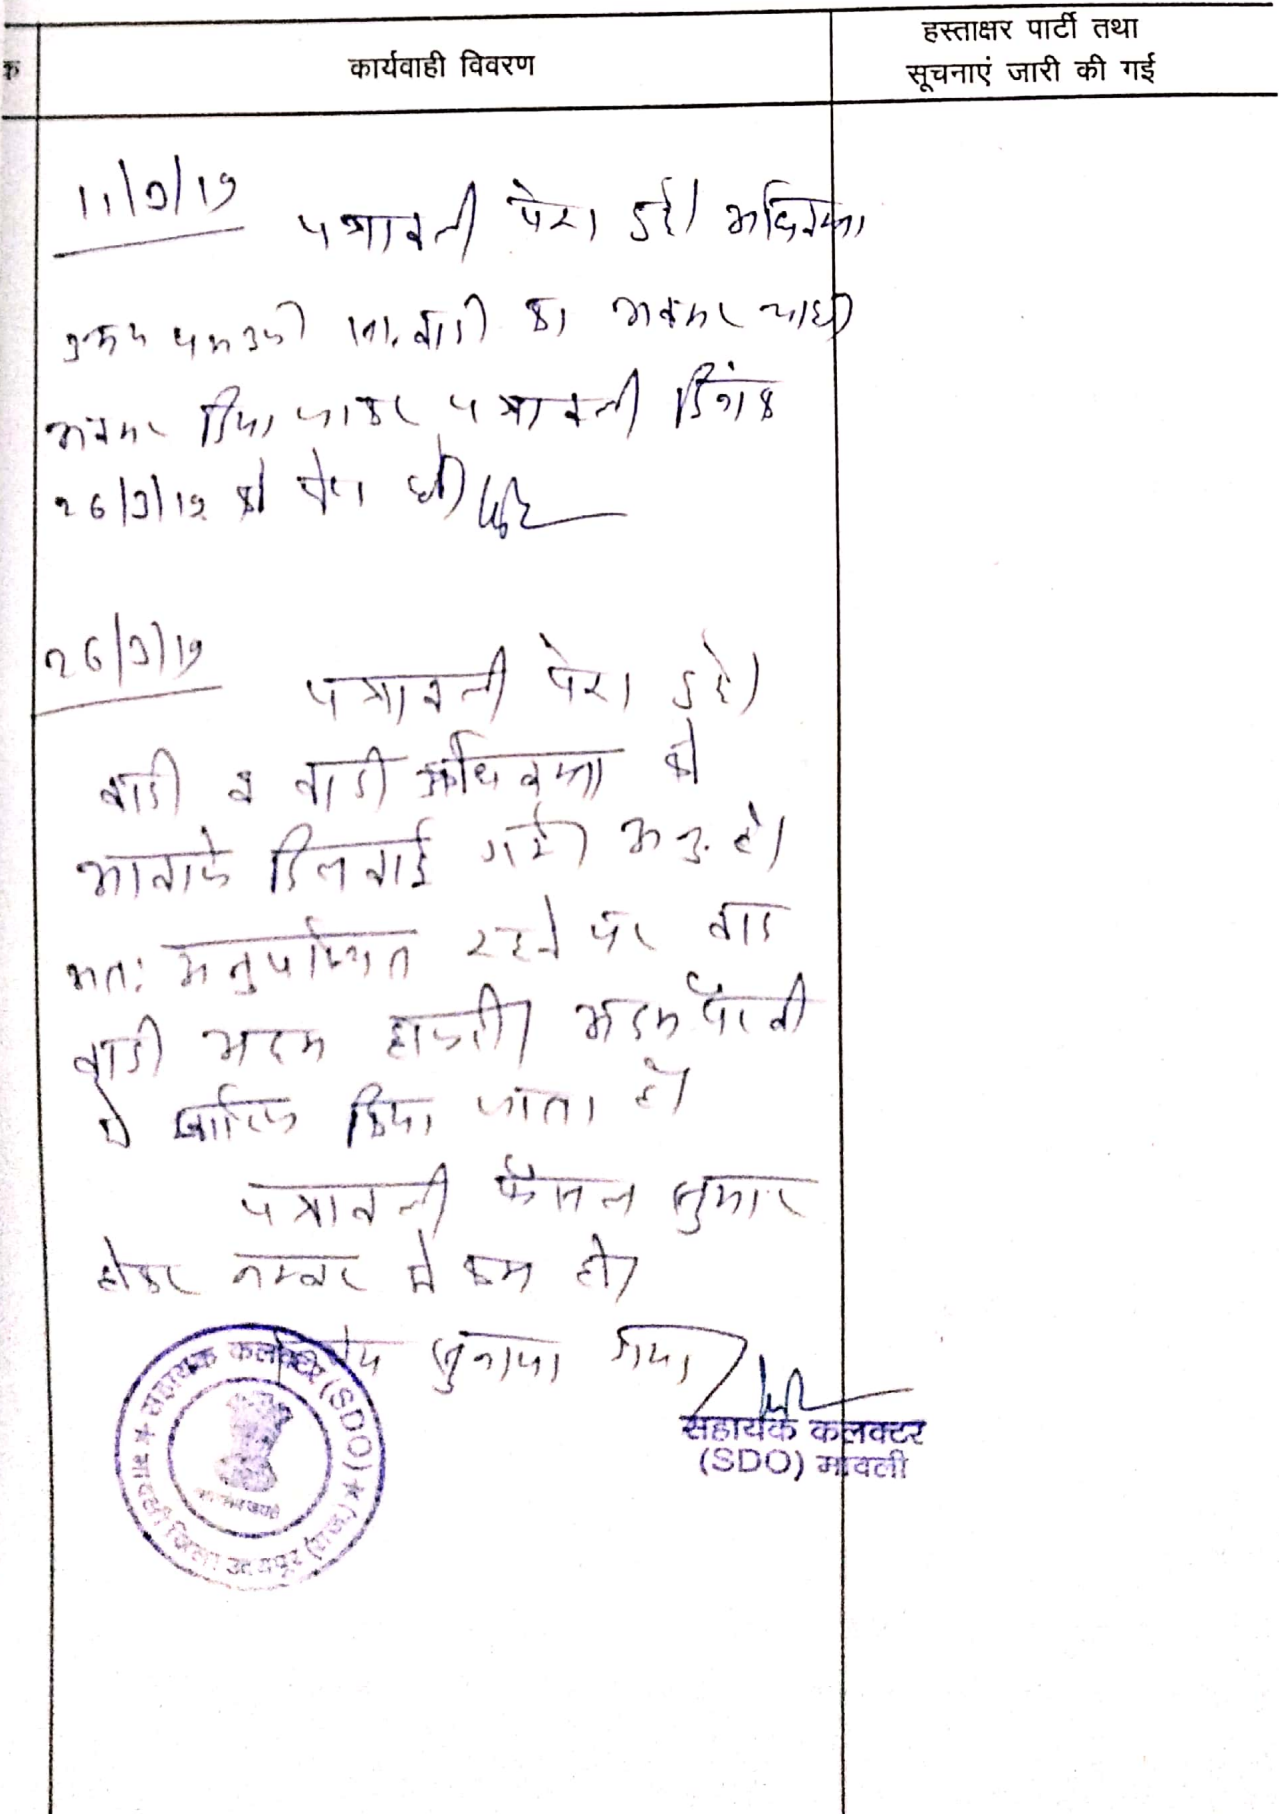 क
कार्यवाही विवरण
हस्ताक्षर पार्टी तथा
सूचनाएं जारी की गई
11/3/19
पत्रावली पेश हुई। अधिवक्ता
उभय पक्ष उप. वादी का अवसर चाहा
अवसर दिया जाकर पत्रावली दिनांक
26/3/19 को पेश हो।
26/3/19
पत्रावली पेश हुई।
वादी व वादी अधिवक्ता को
आवाजे दिलवाई गई। अनु. है।
अतः अनुपस्थित रहने पर वाद
वादी अदम हाजरी अदम पैरवी
में खारिज किया जाता है।
पत्रावली फैसल शुमार
होकर नम्बर से कम हो।
निर्णय सुनाया गया।
सहायक कलक्टर
(SDO) मावली
सहायक कलक्टर (SDO)
मावली जिला उदयपुर (राज.)